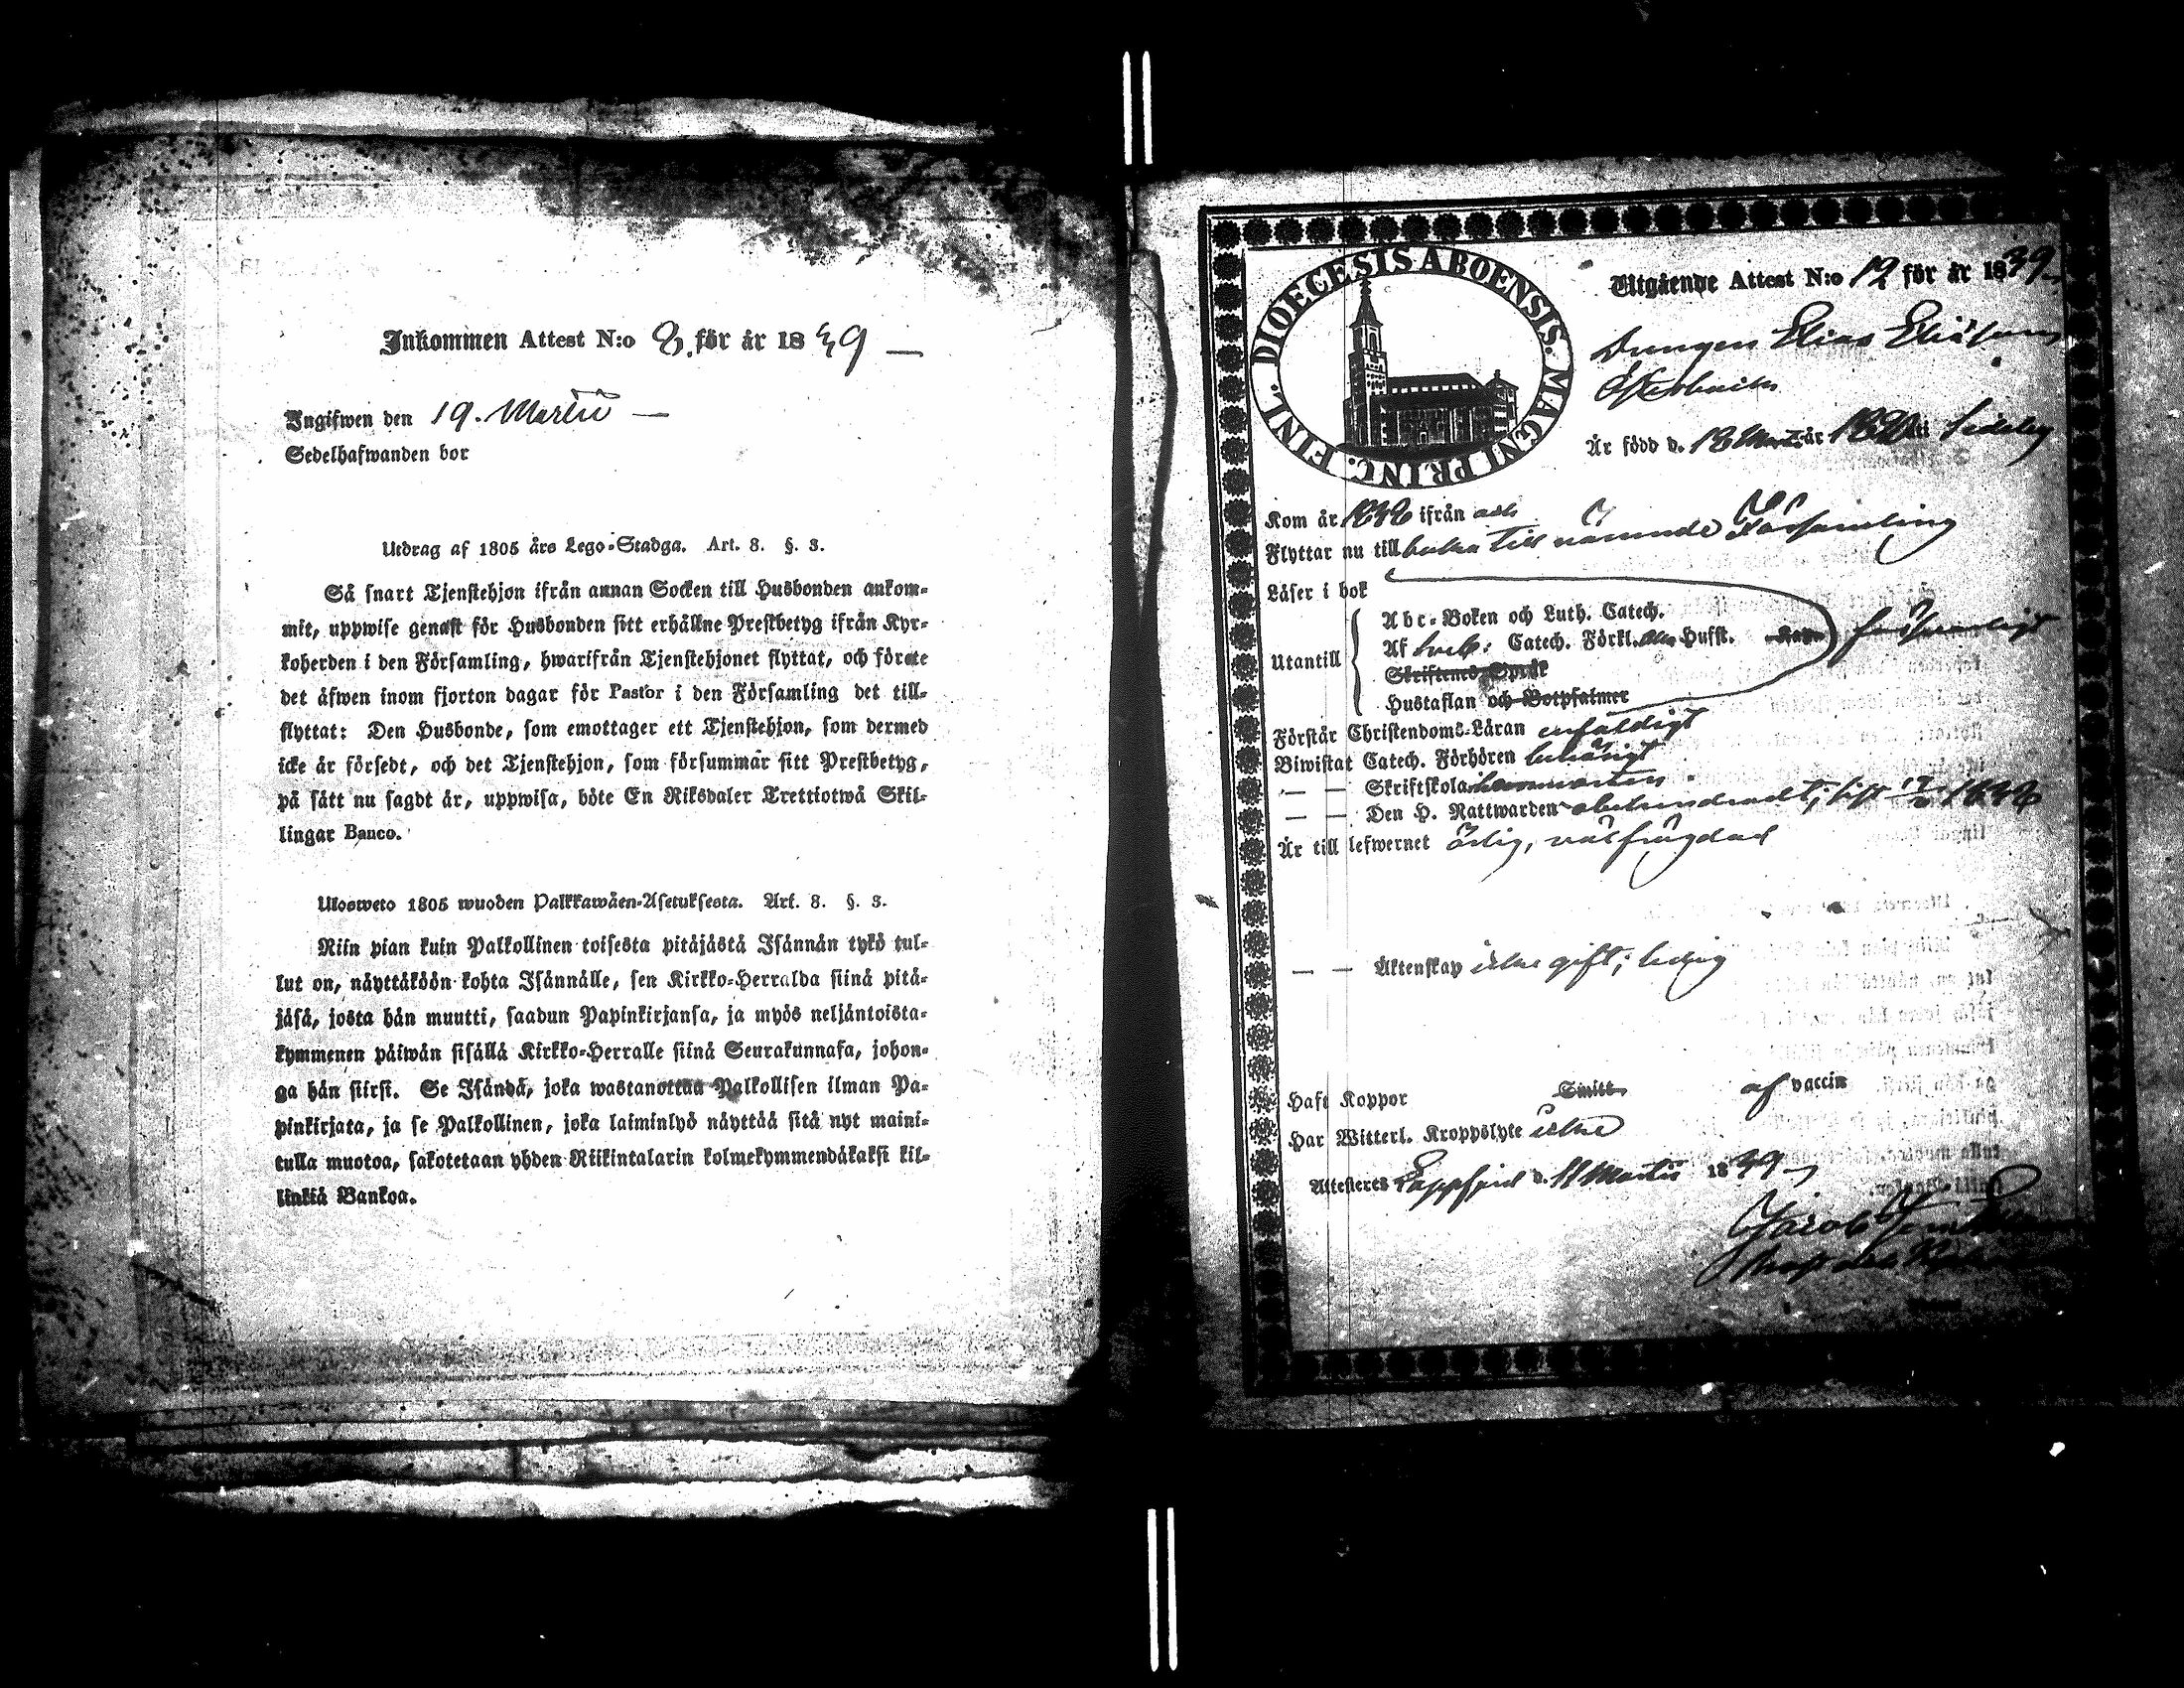 Inkommen Attest N:o 8. för år 1839 —
Ingifwen den 19. Martii —
Sedelhafwanden bor
Utdrag af 1805 års Lego-Stadga. Art. 8. §. 3.
Så snart Tjenstehjon ifrån annan Socken till Husbonden ankom-
mit, uppwise genast för Husbonden sitt erhållne Prestbetyg ifrån Kyr-
koherden i den Församling, hwarifrån Tjenstehjonet flyttat, och förete
det äfwen inom fjorton dagar för Pastor i den Församling det till-
flyttat: Den Husbonde, som emottager ett Tjenstehjon, som dermed
icke är försedt, och det Tjenstehjon, som försummar sitt Prestbetyg,
på sätt nu sagdt är, uppwisa, böte En Riksdaler Trettiotwå Skil-
lingar Banco.
Ulosweto 1805 wuoden Palkkawäen-Asetuksesta. Art. 8. §. 3.
Niin pian kuin Palkollinen toisesta pitäjästä Isännän tykö tul-
lut on, näyttäköön kohta Isännälle, sen Kirkko-Herralda siinä pitä-
jäsä, josta hän muutti, saadun Papinkirjansa, ja myös neljäntoista-
kymmenen päiwän sisällä Kirkko-Herralle siinä Seurakunnasa, johon-
ga hän siirsi. Se Isändä, joka wastanottaa Palkollisen ilman Pa-
pinkirjata, ja se Palkollinen, joka laiminlyö näyttää sitä nyt maini-
tulla muotoa, sakotetaan yhden Riikintalarin kolmekymmendäkaksi kil-
linkiä Bankoa.
DIOECESIS ABOENSIS. MAGNI PRINC. FINL.
Utgående Attest N:o 12 för år 1839
Drengen Elias
Är född d. 18 år i Sideby
Kom år ifrån och
Flyttar nu till nämnde Församling
Läser i bok
Utantill
Abc-Boken och Luth. Catech.
Af Catech. Förkl. Husst.
Skriftenes Språk
Hustaflan och Botpsalmer
försvarligt
Förstår Christendoms-Läran enfäldigt
Biwistat Catech. Förhören behörigt
— — Skriftskola
— — Den H. Nattwarden
Är till lefwernet ärlig, välfrägdad
— — Äktenskap icke gift; ledig
Haft Koppor Smitt af vaccin
Har Witterl. Kroppslyte icke
Attesteres Lappfjerd d. 11 Martii 1839
Jacob